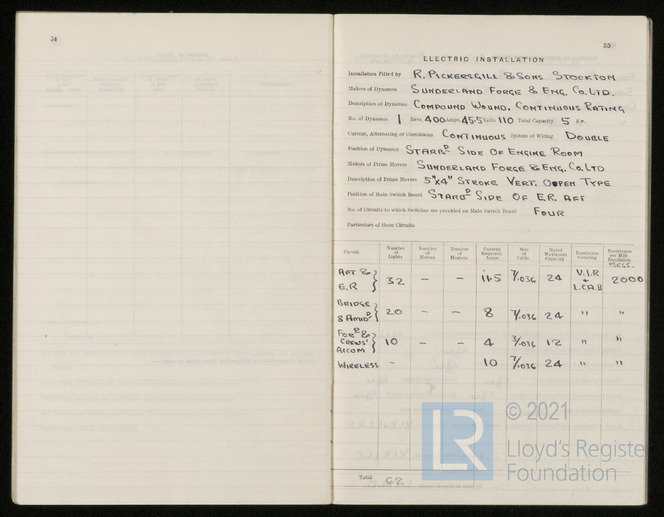 34
35
ELECTRIC INSTALLATION
Installation Fitted by R. PICKERSGILL & SONS STOCKTON
Makers of Dynamos SUNDERLAND FORGE & ENG. CO. LTD.
Description of Dynamos COMPOUND WOUND, CONTINUOUS RATING
No. of Dynamos 1 Revs 400 Amps. 45.5 Volts 110 Total Capacity 5 Kw.
Current, Alternating or Continuous CONTINUOUS System of Wiring DOUBLE
Position of Dynamos STARBD SIDE OF ENGINE ROOM
Makers of Prime Movers SUNDERLAND FORGE & ENG. CO. LTD
Description of Prime Movers 5"x4" STROKE VERT. OPEN TYPE
Position of Main Switch Board STARBD SIDE OF E.R. AFT
No. of Circuits to which Switches are provided on Main Switch Board FOUR
Particulars of these Circuits
Circuit. Number of Lights Number of Motors Number of Heaters Current Required. Amps. Size of Cable Rated Maximum Capacity Insulation Resistance per Mile
AFT & E.R 32 — — 11.5 7/.036 24 V.I.R + L.C.A.B 2000
BRIDGE & AMIDP 20 — — 8 7/.036 24 " "
FORD & CREWS' ACCOM 10 — — 4 3/.036 12 " "
WIRELESS — 10 7/.036 24 " "
Total 62
© 2021
LR
Lloyd's Register
Foundation